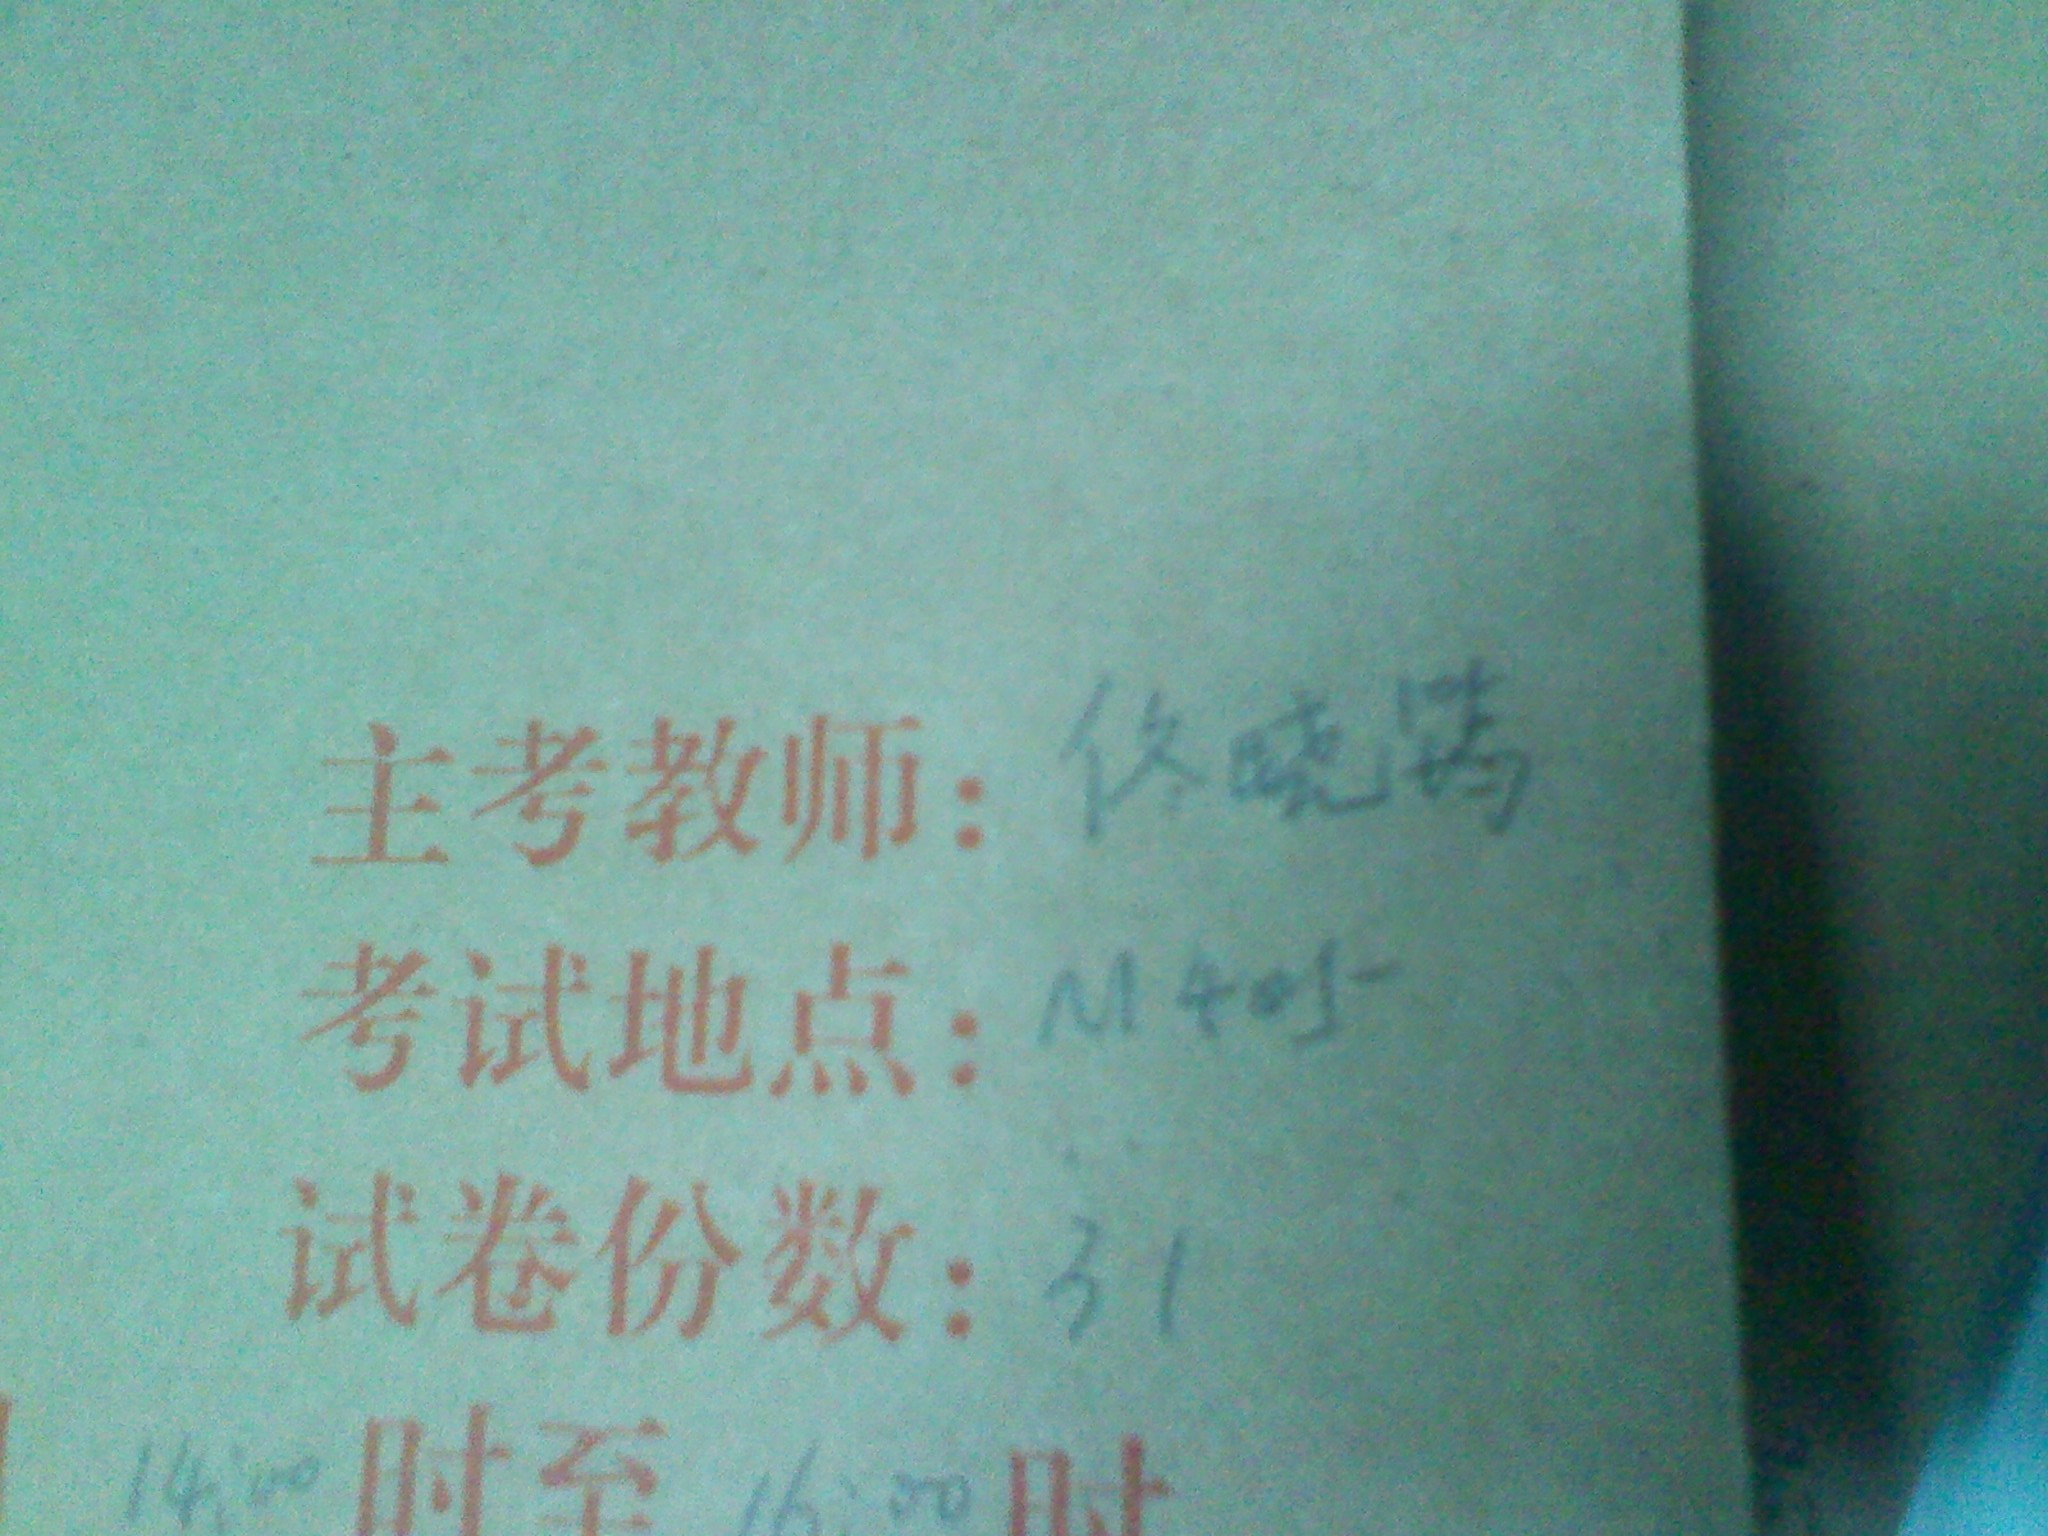 主考教师：佟晓筠
考试地点：M405
试卷份数：31
14:00时至16:00时